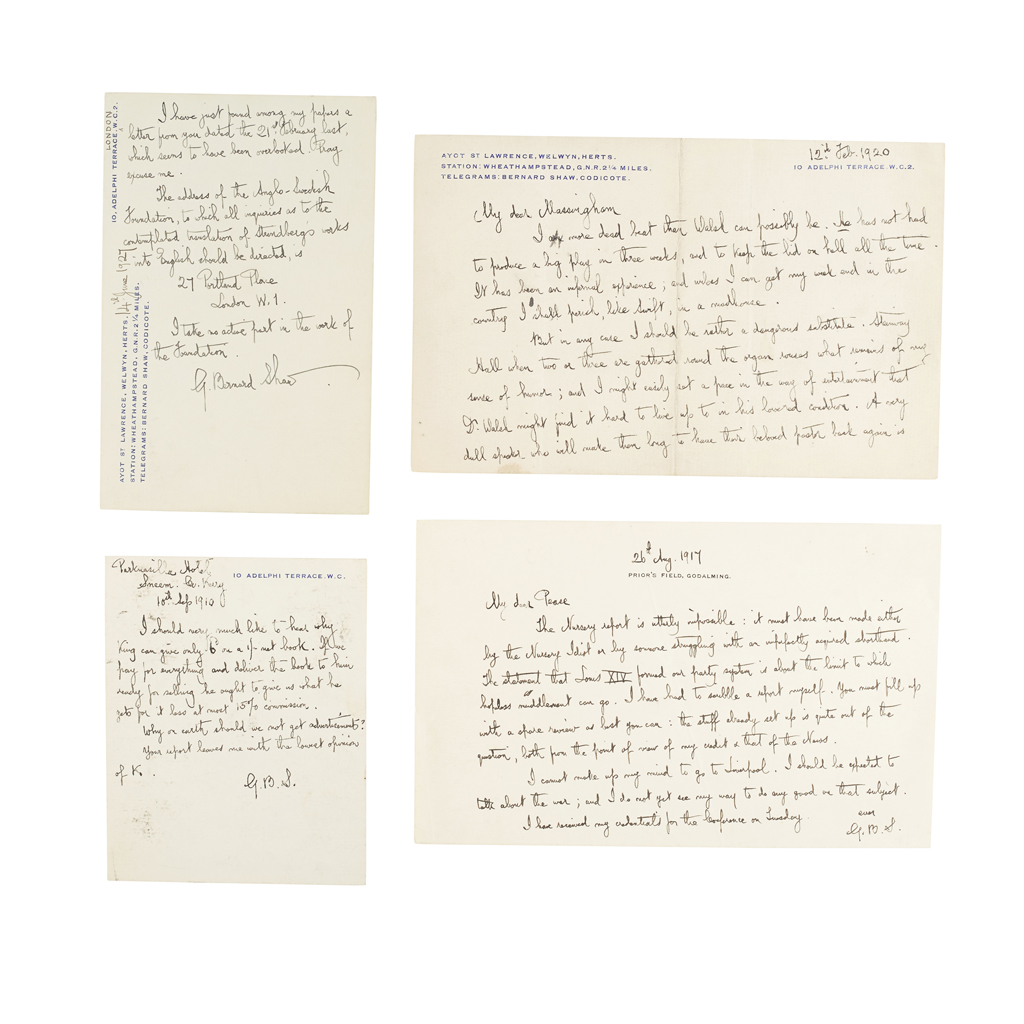 LONDON
10, ADELPHI TERRACE. W.C.2.
I have just found among my papers a
letter from you dated the 21st February last,
which seems to have been overlooked. Pray
excuse me.
The address of the Anglo-Swedish
Foundation, to which all inquiries as to the
contemplated translation of Strindberg's works
into English should be directed, is
27 Portland Place
London W.1.
I take no active part in the work of
the Foundation.
G. Bernard Shaw
June 1927
AYOT ST LAWRENCE, WELWYN, HERTS.
STATION: WHEATHAMPSTEAD, G.N.R. 2¼ MILES.
TELEGRAMS: BERNARD SHAW, CODICOTE.
AYOT ST LAWRENCE, WELWYN, HERTS.
STATION: WHEATHAMPSTEAD, G.N.R. 2¼ MILES.
TELEGRAMS: BERNARD SHAW, CODICOTE.
12th Feb. 1920
10 ADELPHI TERRACE. W.C.2.
My dear Massingham
I am more dead beat than Walsh can possibly be. He has not had
to produce a big play in three weeks, and to keep the lid on hell all the time.
It has been an infernal experience; and unless I can get my week end in the
country I shall perish, like Swift, in a madhouse.
But in any case I should be rather a dangerous substitute. Steinway
Hall when two or three are gathered round the organ rouses what remains of my
sense of humor; and I might easily set a pace in the way of entertainment that
Dr Walsh might find it hard to live up to in his lowered condition. A very
dull speaker who will make them long to have their beloved pastor back again is
Parknasilla Hotel
Sneem. Co. Kerry
10th Sep 1910
10 ADELPHI TERRACE. W.C.
I should very much like to hear why
King can give only 6d on a 1/- net book. If we
pay for everything and deliver the book to him
ready for selling he ought to give us what he
gets for it less at most 15% commission.
Why on earth should we not get advertisements?
Your report leaves me with the lowest opinion
of K.
G.B.S.
26th Aug. 1917
PRIOR'S FIELD, GODALMING.
My dear Pease
The Nursery report is utterly impossible: it must have been made either
by the Nursery Idiot or by someone struggling with an imperfectly acquired shorthand.
The statement that Louis XIV formed our party system is about the limit to which
hopeless muddlement can go. I have had to scribble a report myself. You must fill up
with a spare review as best you can: the stuff already set up is quite out of the
question, both from the point of view of my credit & that of the News.
I cannot make up my mind to go to Liverpool. I should be expected to
talk about the war; and I do not yet see my way to do any good on that subject.
I have received my credentials for the Conference on Tuesday.
ever
G.B.S.